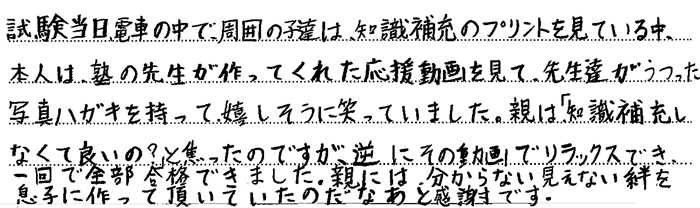 試験当日電車の中で、周囲の子達は、知識補充のプリントを見ている中、
本人は、塾の先生が作ってくれた応援動画を見て、先生達がうつった
写真ハガキを持って、嬉しそうに笑っていました。親は「知識補充し
なくて良いの?」と焦ったのですが、逆にその動画でリラックスでき、
一回で全部合格できました。親には、分からない見えない絆を
息子に作って頂いていたのだなあと感謝です。